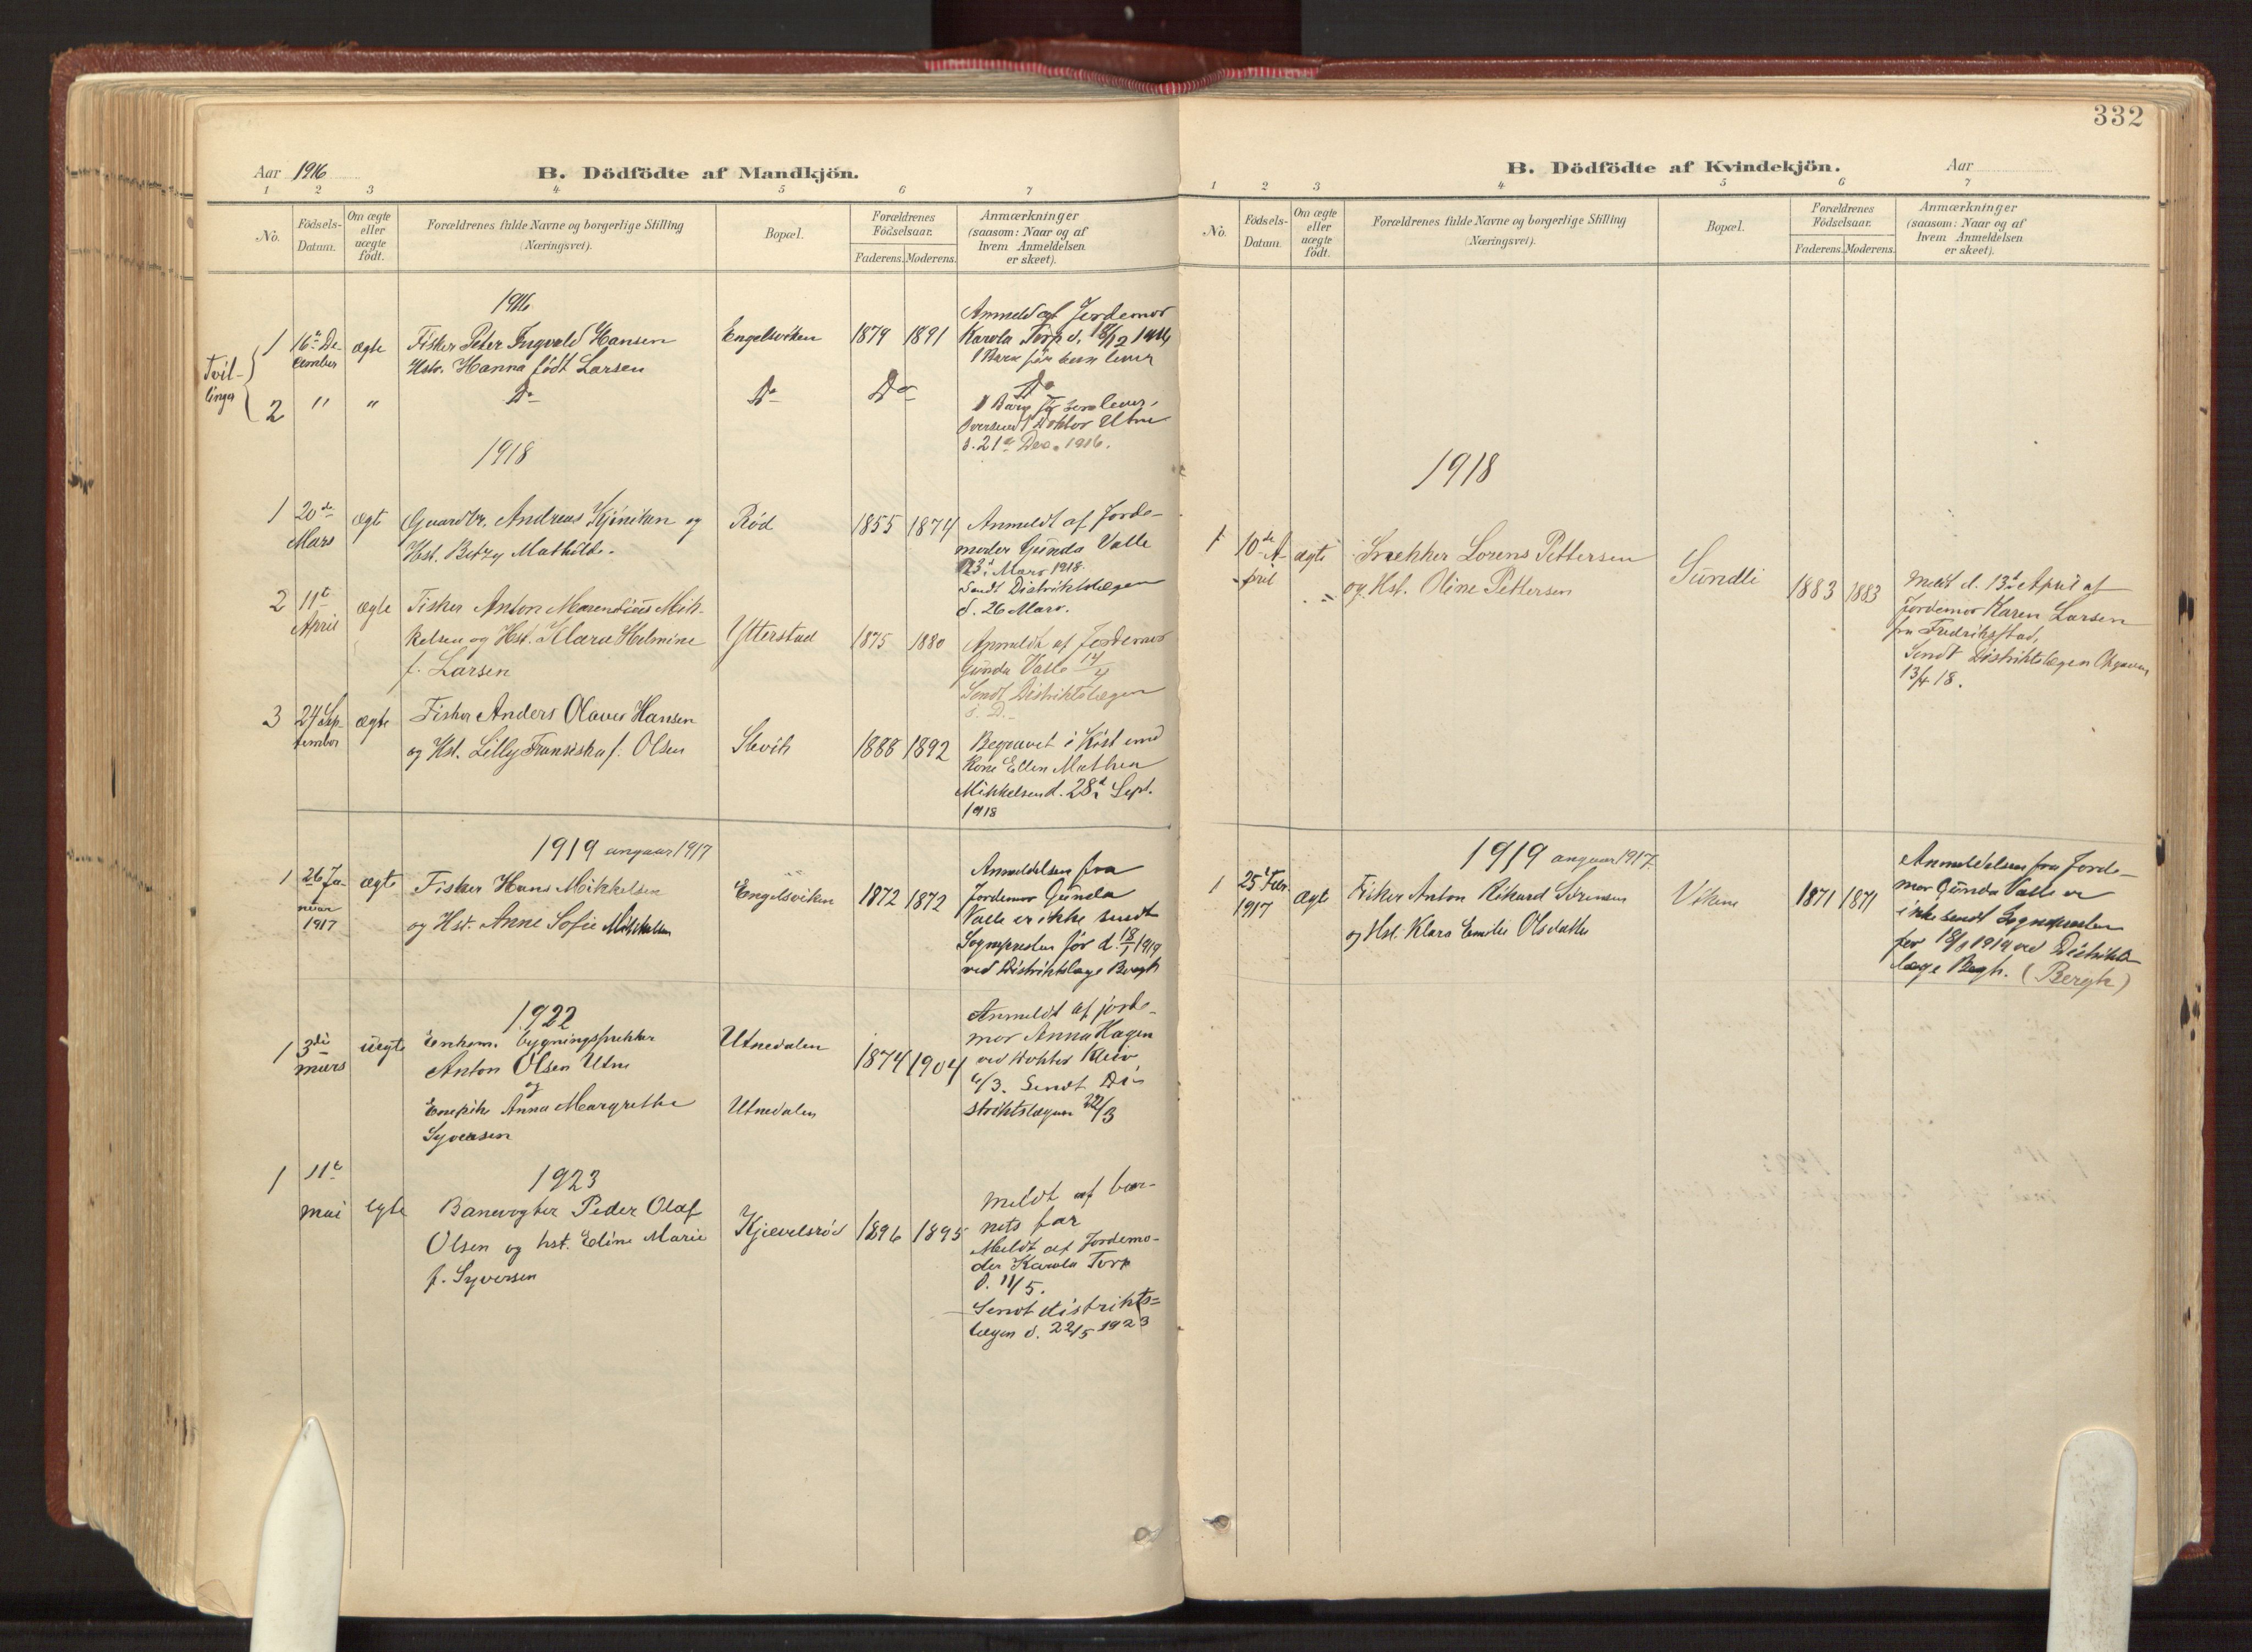 332
Aar 1916
B. Dödfödte af Mandkjön.
1 2 3 4 5 6 7
No.
Födsels-
Datum.
Om ægte
eller
uægte
födt.
Forældrenes fulde Navne og borgerlige Stilling
(Næringsvei).
Bopæl.
Forældrenes
Födselsaar.
Faderens. Moderens.
Anmærkninger
(saasom: Naar og af
hvem Anmeldelsen
er skeet).
1916
Tvil-
linger
1 16de De-
cember
ægte
Fisker Peter Ingvald Hansen
Hstr. Hanna födt Larsen
Engelsviken
1879 1891
Anmeld af Jordemor
Karola Torp d. 18/12 1916
1 Barn för som lever
2 " "
Do
Do
Do
Do
1 Barn för som lever,
Oversendt Doktor Utne
d. 21de Dec. 1916.
1918
1 20de
Mars
ægte
Gaardbr. Andreas Kjöniken og
Hst. Betzy Mathilde.
Röd
1855 1874
Anmeldt af Jorde-
moder Gunda Valle
23. Mars 1918.
Sendt Distriktslægen
d. 26 Mars.
2 11te
April
ægte
Fisker Anton Marendius Mik-
kelsen og Hst. Klara Helmine
f. Larsen
Ytterstad
1875 1880
Anmeldt af Jordemor
Gunda Valle 14/4
Sendt Distriktslægen
s. D.
3 24 Sep
tember
ægte
Fisker Anders Olaves Hansen
og Hst. Lilly Fransiska f. Olsen
Slevik
1888 1892
Begravet i Kist med
Kone Ellen Mathea
Mikkelsen d. 28de Sept.
1918
1919 angaar 1917
1 26 Ja-
nuar
1917
ægte
Fisker Hans Mikkelsen
og Hst. Anne Sofie Mikkelsen
Engelsviken
1872 1872
Anmeldelsen fra
Jordemor Gunda
Valle er ikke sendt
Sognpresten för d. 18/1 1919
ved Distriktslæge Bergh
1922
1 3die
mars
uegte
Enkem. bygningssnekker
Anton Olsen Utne
og
Enepike Anna Margrethe
Syversen
Utnedalen
Utnedalen
1874 1904
Anmeldt af jorde-
mor Anna Hagen
ved doktor
6/3. Sendt Di-
striktslægen 22/3
1923
1 11te
mai
egte
Banevogter Peder Olaf
Olsen og hst. Edine Marie
f. Syversen
Kjævelsröd
1896 1895
Meldt af bar-
nets far
Meldt af Jordemo-
der Karola Torp
d. 11/5.
Sendt distrikts-
lægen d. 22/5 1923
B. Dödfödte af Kvindekjön.
Aar
1 2 3 4 5 6 7
No.
Födsels-
Datum.
Om ægte
eller
uægte
födt.
Forældrenes fulde Navne og borgerlige Stilling
(Næringsvei).
Bopæl.
Forældrenes
Födselsaar.
Faderens. Moderens.
Anmærkninger
(saasom: Naar og af
hvem Anmeldelsen
er skeet).
1918
1 10de A-
pril
ægte
Snekker Lorens Pettersen
og Hst. Oline Pettersen
Sundli
1883 1883
Meldt d. 13de April af
Jordemor Karen Larsen
fra Fredrikstad,
Sendt Distriktslægen
13/4 18.
1919 angaar 1917.
1 25de Febr.
1917
ægte
Fisker Anton Rikard Sörensen
og Hst. Klara Emilie Olsdatter
Vikene
1871 1871
Anmeldelsen fra Jorde-
mor Gunda Valle er
ikke sendt Sognepresten
för 18/1 1919 ved Distrikts-
læge Bergh. (Bergh)